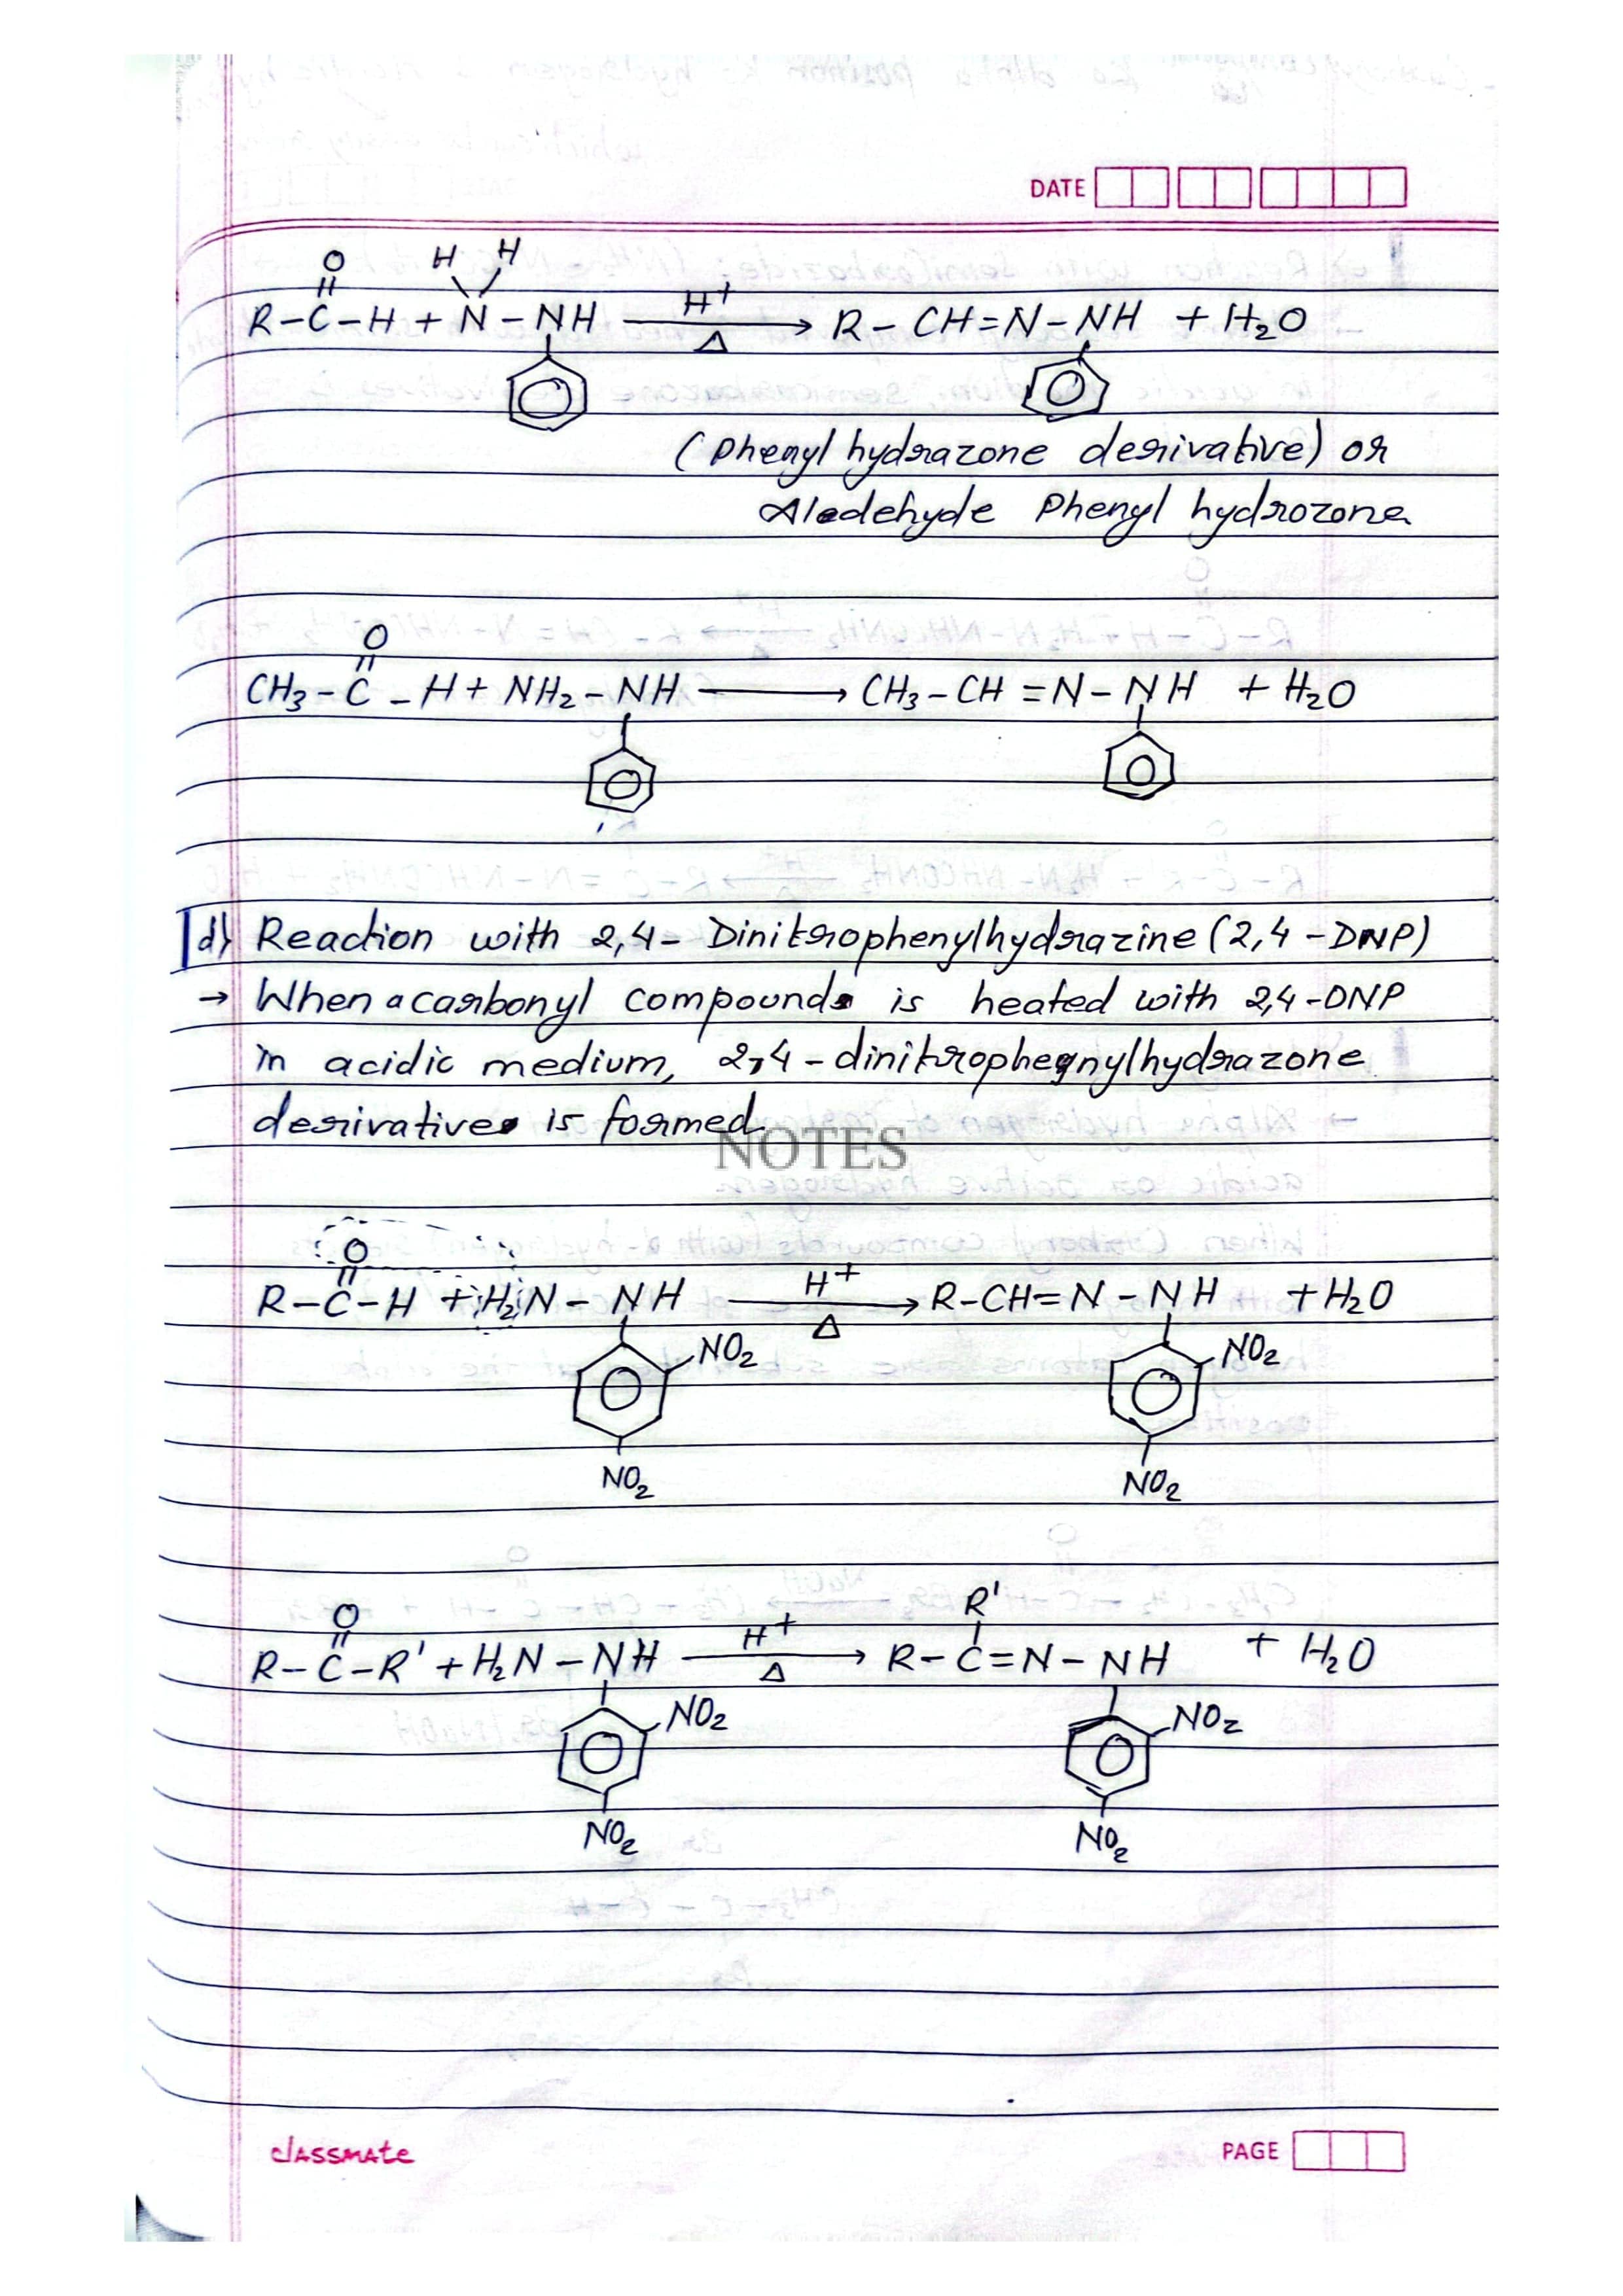 DATE
O H H
R-C-H + N-NH H+ Δ → R-CH=N-NH + H2O
(Phenyl hydrazone derivative) or
Aledehyde Phenyl hydrozone
O
CH3-C-H + NH2-NH → CH3-CH=N-NH + H2O
d) Reaction with 2,4- Dinitrophenylhydrazine (2,4-DNP)
→ When a carbonyl compound is heated with 2,4-DNP
in acidic medium, 2,4-dinitrophenylhydrazone
derivative is formed.
NOTES
O
R-C-H + H2N-NH H+ Δ → R-CH=N-NH + H2O
NO2 NO2
NO2 NO2
O R'
R-C-R' + H2N-NH H+ Δ → R-C=N-NH + H2O
NO2 NO2
NO2 NO2
classmate PAGE